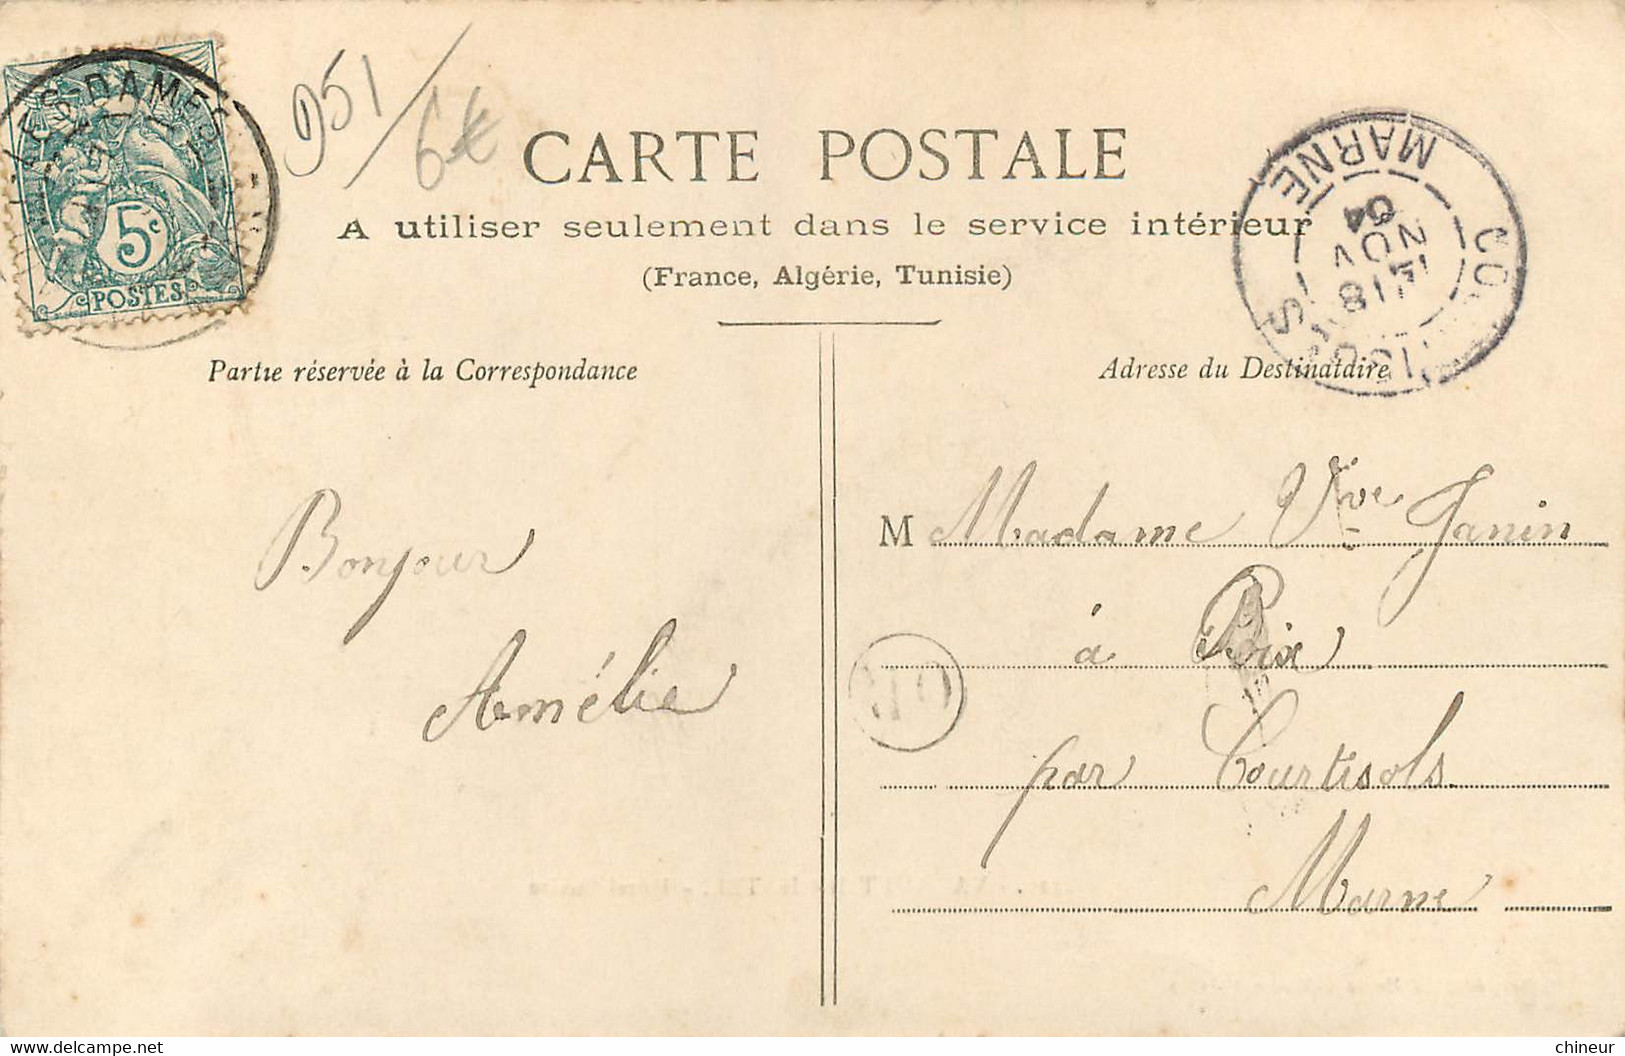 LES DAMES
5c
POSTES
951/6€
CARTE POSTALE
A utiliser seulement dans le service intérieur
(France, Algérie, Tunisie)
MARNE
18
NOV
04
Partie réservée à la Correspondance
Adresse du Destinatdire
Bonjour
Amélie
M Madame Vve Janin
à Poix
par Courtisols
Marne
delcampe.net
chineur